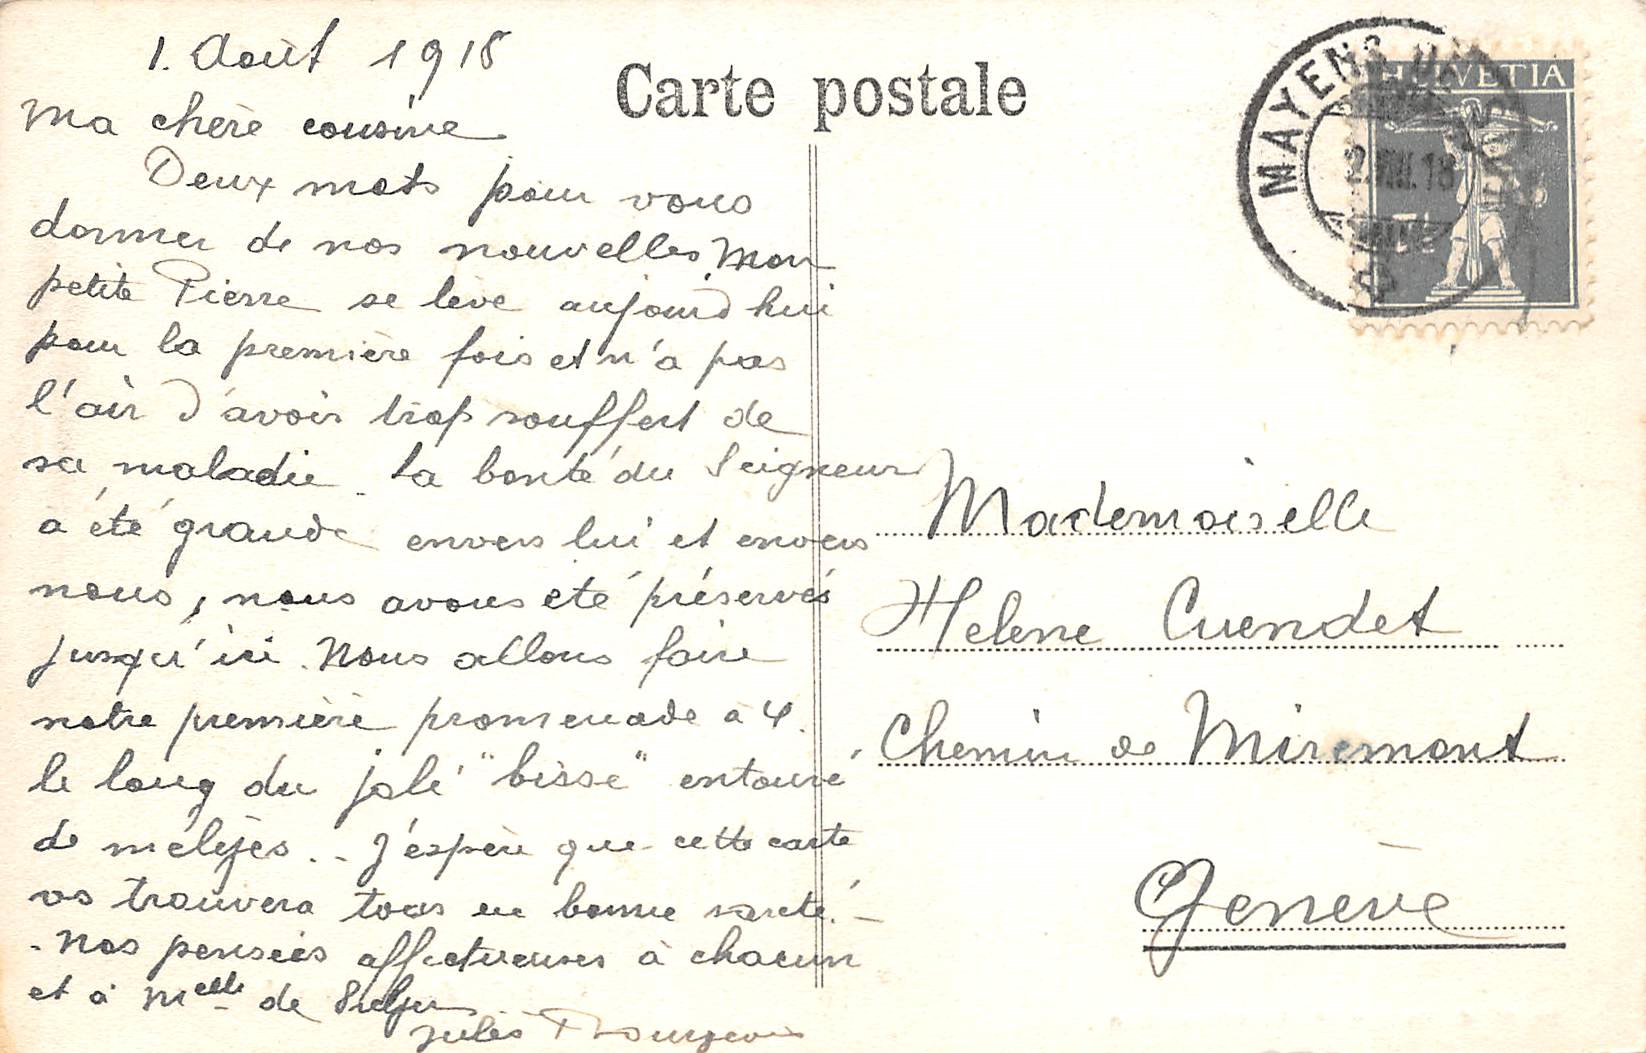 1. Août 1918
Ma chère cousine
Deux mots pour vous
donner de nos nouvelles, Mon
petite Pierre se lève aujourd'hui
pour la première fois et n'a pas
l'air d'avoir trop souffert de
sa maladie. La bonté du Seigneur
a été grande envers lui et envers
nous, nous avons été préservés
jusqu'ici. Nous allons faire
notre première promenade à 4.
le long du joli "bisse" entouré
de mélèzes.. J'espère que cette carte
vs trouvera tous en bonne santé. -
- Nos pensées affectueuses à chacun
et à Melle de
Jules Bourgeois
Carte postale
MAYENS DE
2.VIII.18
HELVETIA
Mademoiselle
Helene Cuendet
Chemin de Miremont
Genève